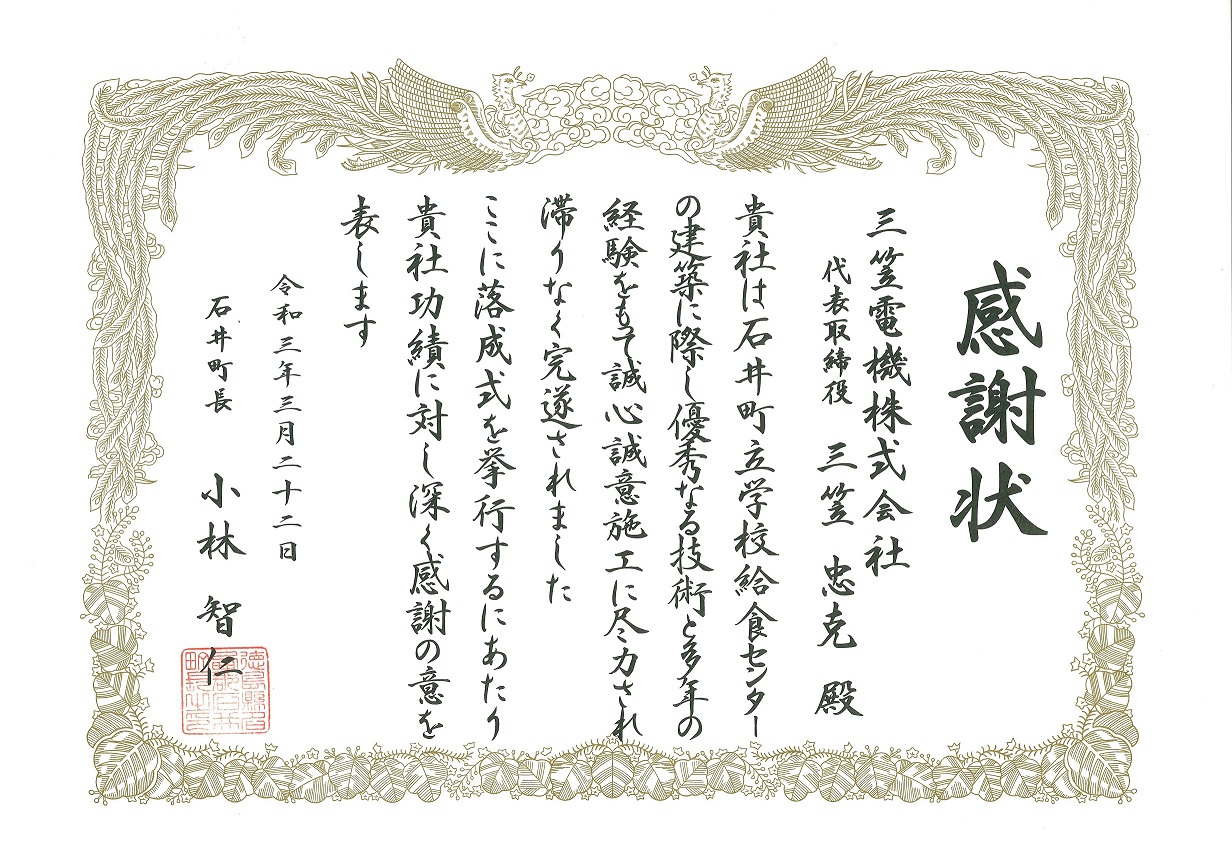 感謝状
三笠電機株式会社
代表取締役 三笠 忠克 殿
貴社は石井町立学校給食センター
の建築に際し優秀なる技術と多年の
経験をもって誠心誠意施工に尽力され
滞りなく完遂されました
ここに落成式を挙行するにあたり
貴社功績に対し深く感謝の意を
表します
令和三年三月二十二日
石井町長 小林 智仁